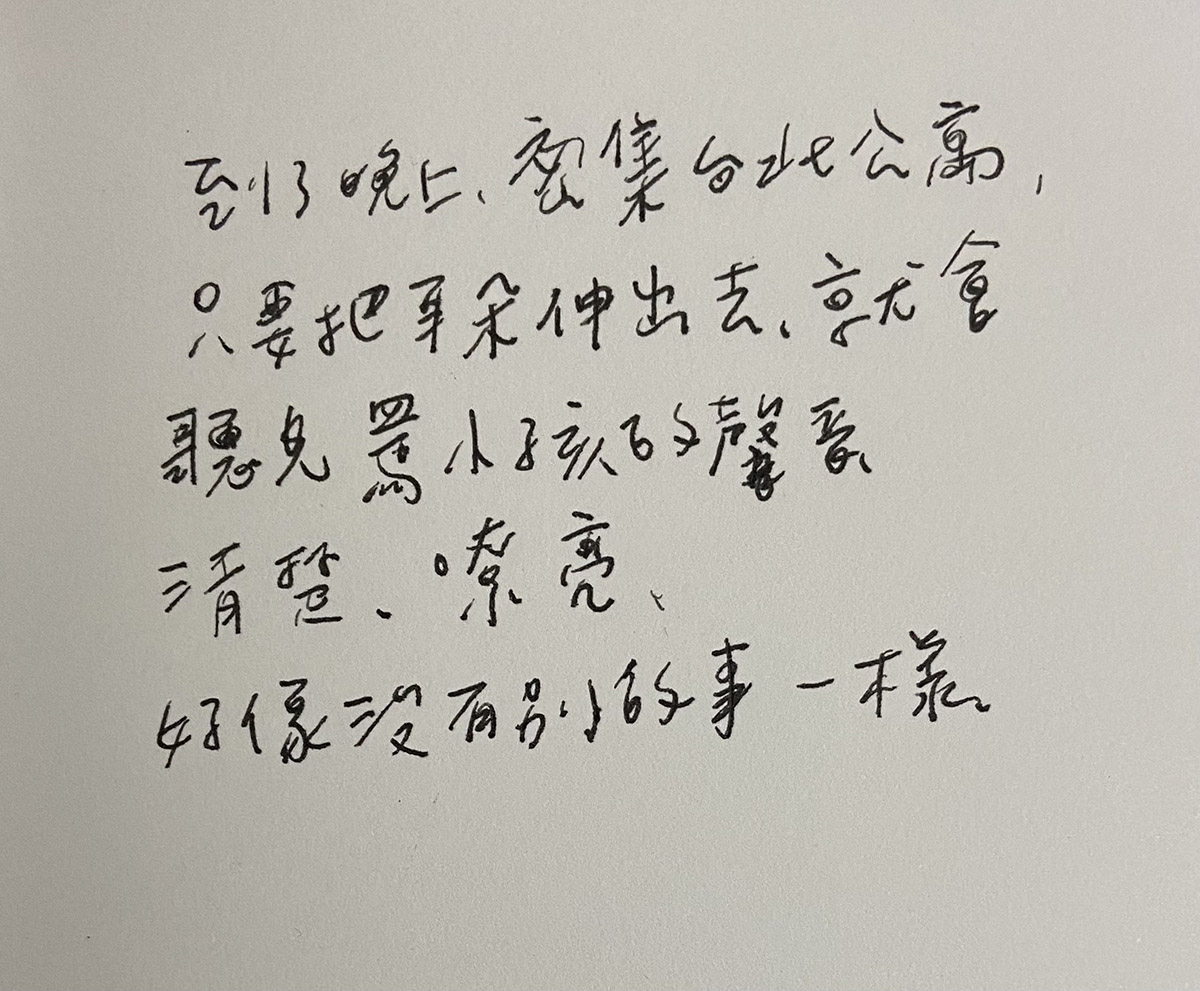 到了晚上、密集台北公寓,
只要把耳朵伸出去、就會
聽見罵小孩的聲音、
清楚、嘹亮、
好像沒有別的事一樣。